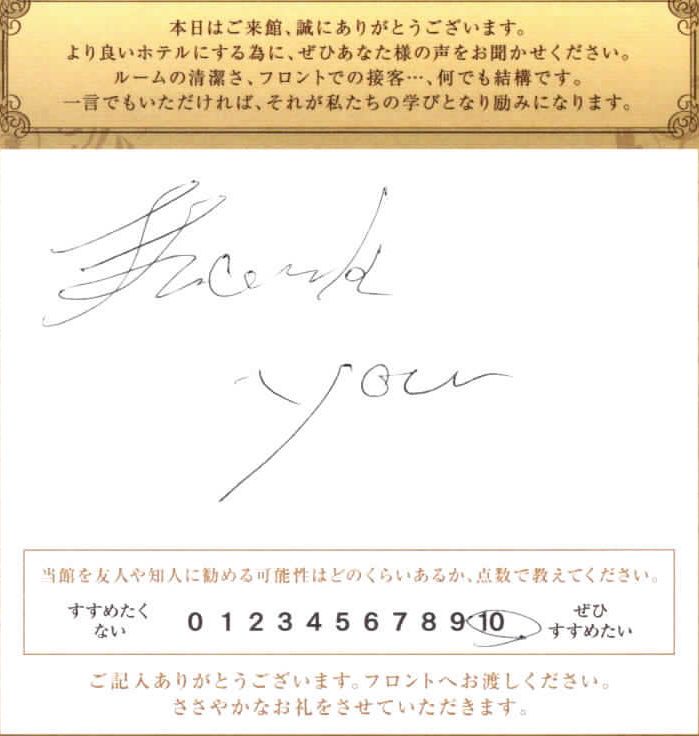 本日はご来館、誠にありがとうございます。
より良いホテルにする為に、ぜひあなた様の声をお聞かせください。
ルームの清潔さ、フロントでの接客…、何でも結構です。
一言でもいただければ、それが私たちの学びとなり励みになります。
Thank
you
当館を友人や知人に勧める可能性はどのくらいあるか、点数で教えてください。
すすめたく
ない
0 1 2 3 4 5 6 7 8 9 10
ぜひ
すすめたい
ご記入ありがとうございます。フロントへお渡しください。
ささやかなお礼をさせていただきます。